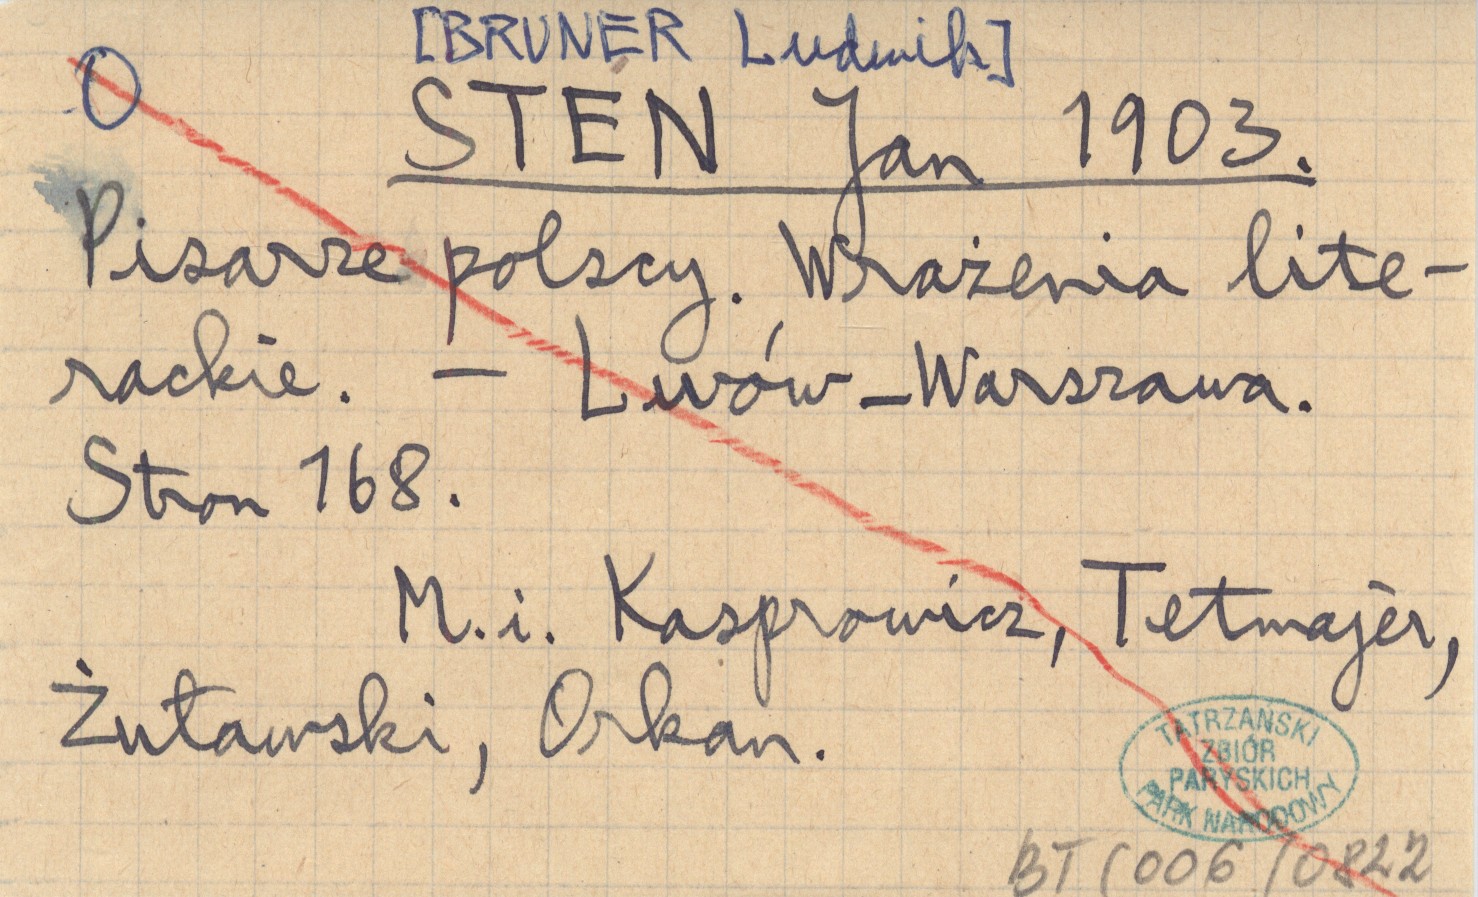 [BRUNER Ludwik]
O
STEN Jan 1903.
Pisarze polscy. Wrażenia lite-
rackie. — Lwów-Warszawa.
Stron 168.
M.i. Kasprowicz, Tetmajer,
Żuławski, Orkan.
TATRZAŃSKI
ZBIÓR
PARYSKICH
PARK NARODOWY
BT/006/0822